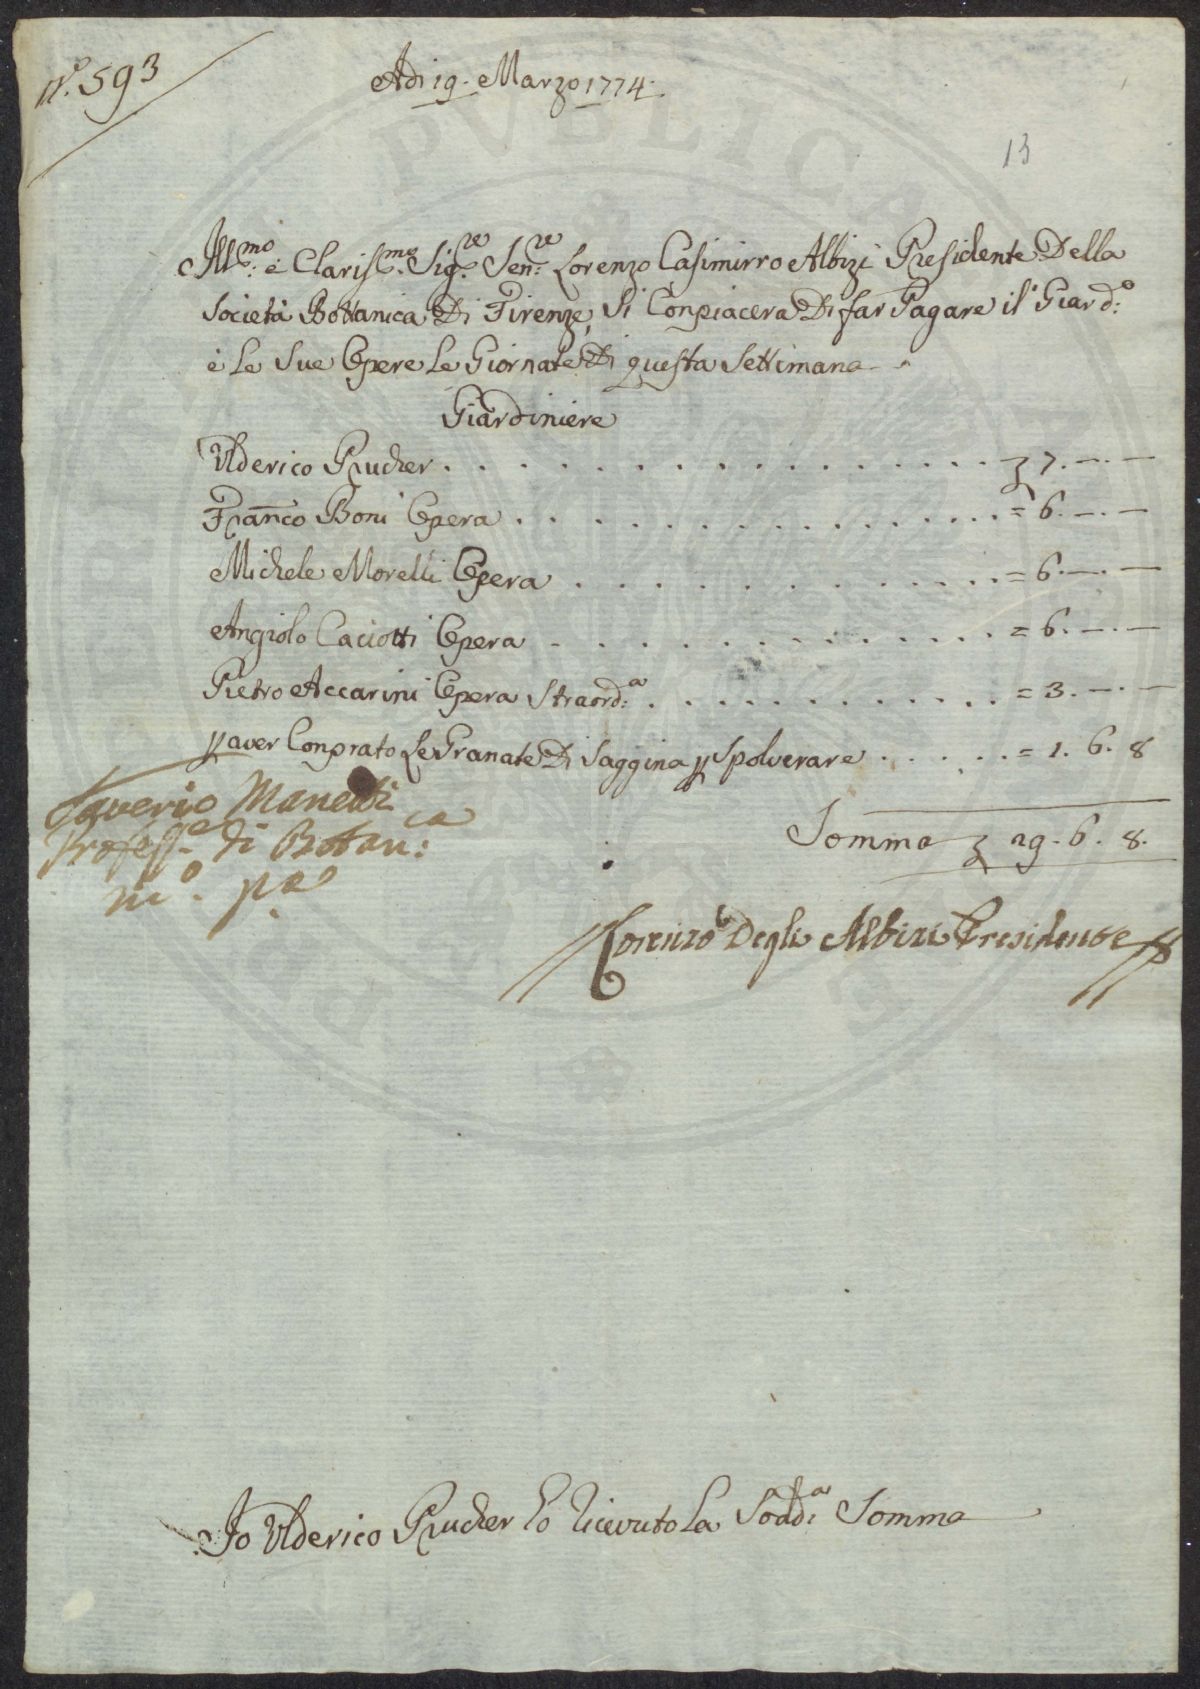 N.° 593
Adi 19. Marzo 1774.
13
Ill.mo e Claris.mo Sig.re Sen.re Lorenzo Casimirro Albizi Presidente Della
Società Bottanica Di Firenze, Si Conpiacera Di far Pagare il Giard.o
e Le Sue Opere Le Giornate Di questa Settimana
Giardiniere
Ulderico Prucher . . . . . . . . . . . . . . . . . 7. —. —
Franco Boni Opera . . . . . . . . . . . . . . = 6. —. —
Michele Morelli Opera . . . . . . . . . . . . = 6. —. —
Angiolo Caciotti Opera . . . . . . . . . . . . = 6. —. —
Pietro Accarini Opera Straord.a . . . . . . . . . = 3. —. —
p aver Conprato Le Granate Di Saggina p Spolverare . . . . . . = 1. 6. 8
Somma 29. 6. 8.
Saverio Manetti
Profess.e di Botan.ca
m.o p.a
Lorenzo Degli Albizi Presidente
Io Ulderico Prucher ho ricevuto La Sodd.a Somma
PVBLICA